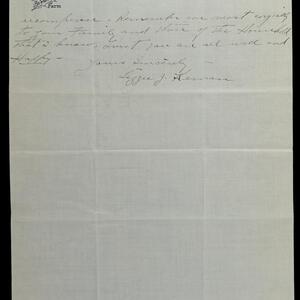 Farm
recompense. Remember me most
to your family and those of the Household
that I know, trust you are all well and
Happy -
Yours Sincerely -
J.